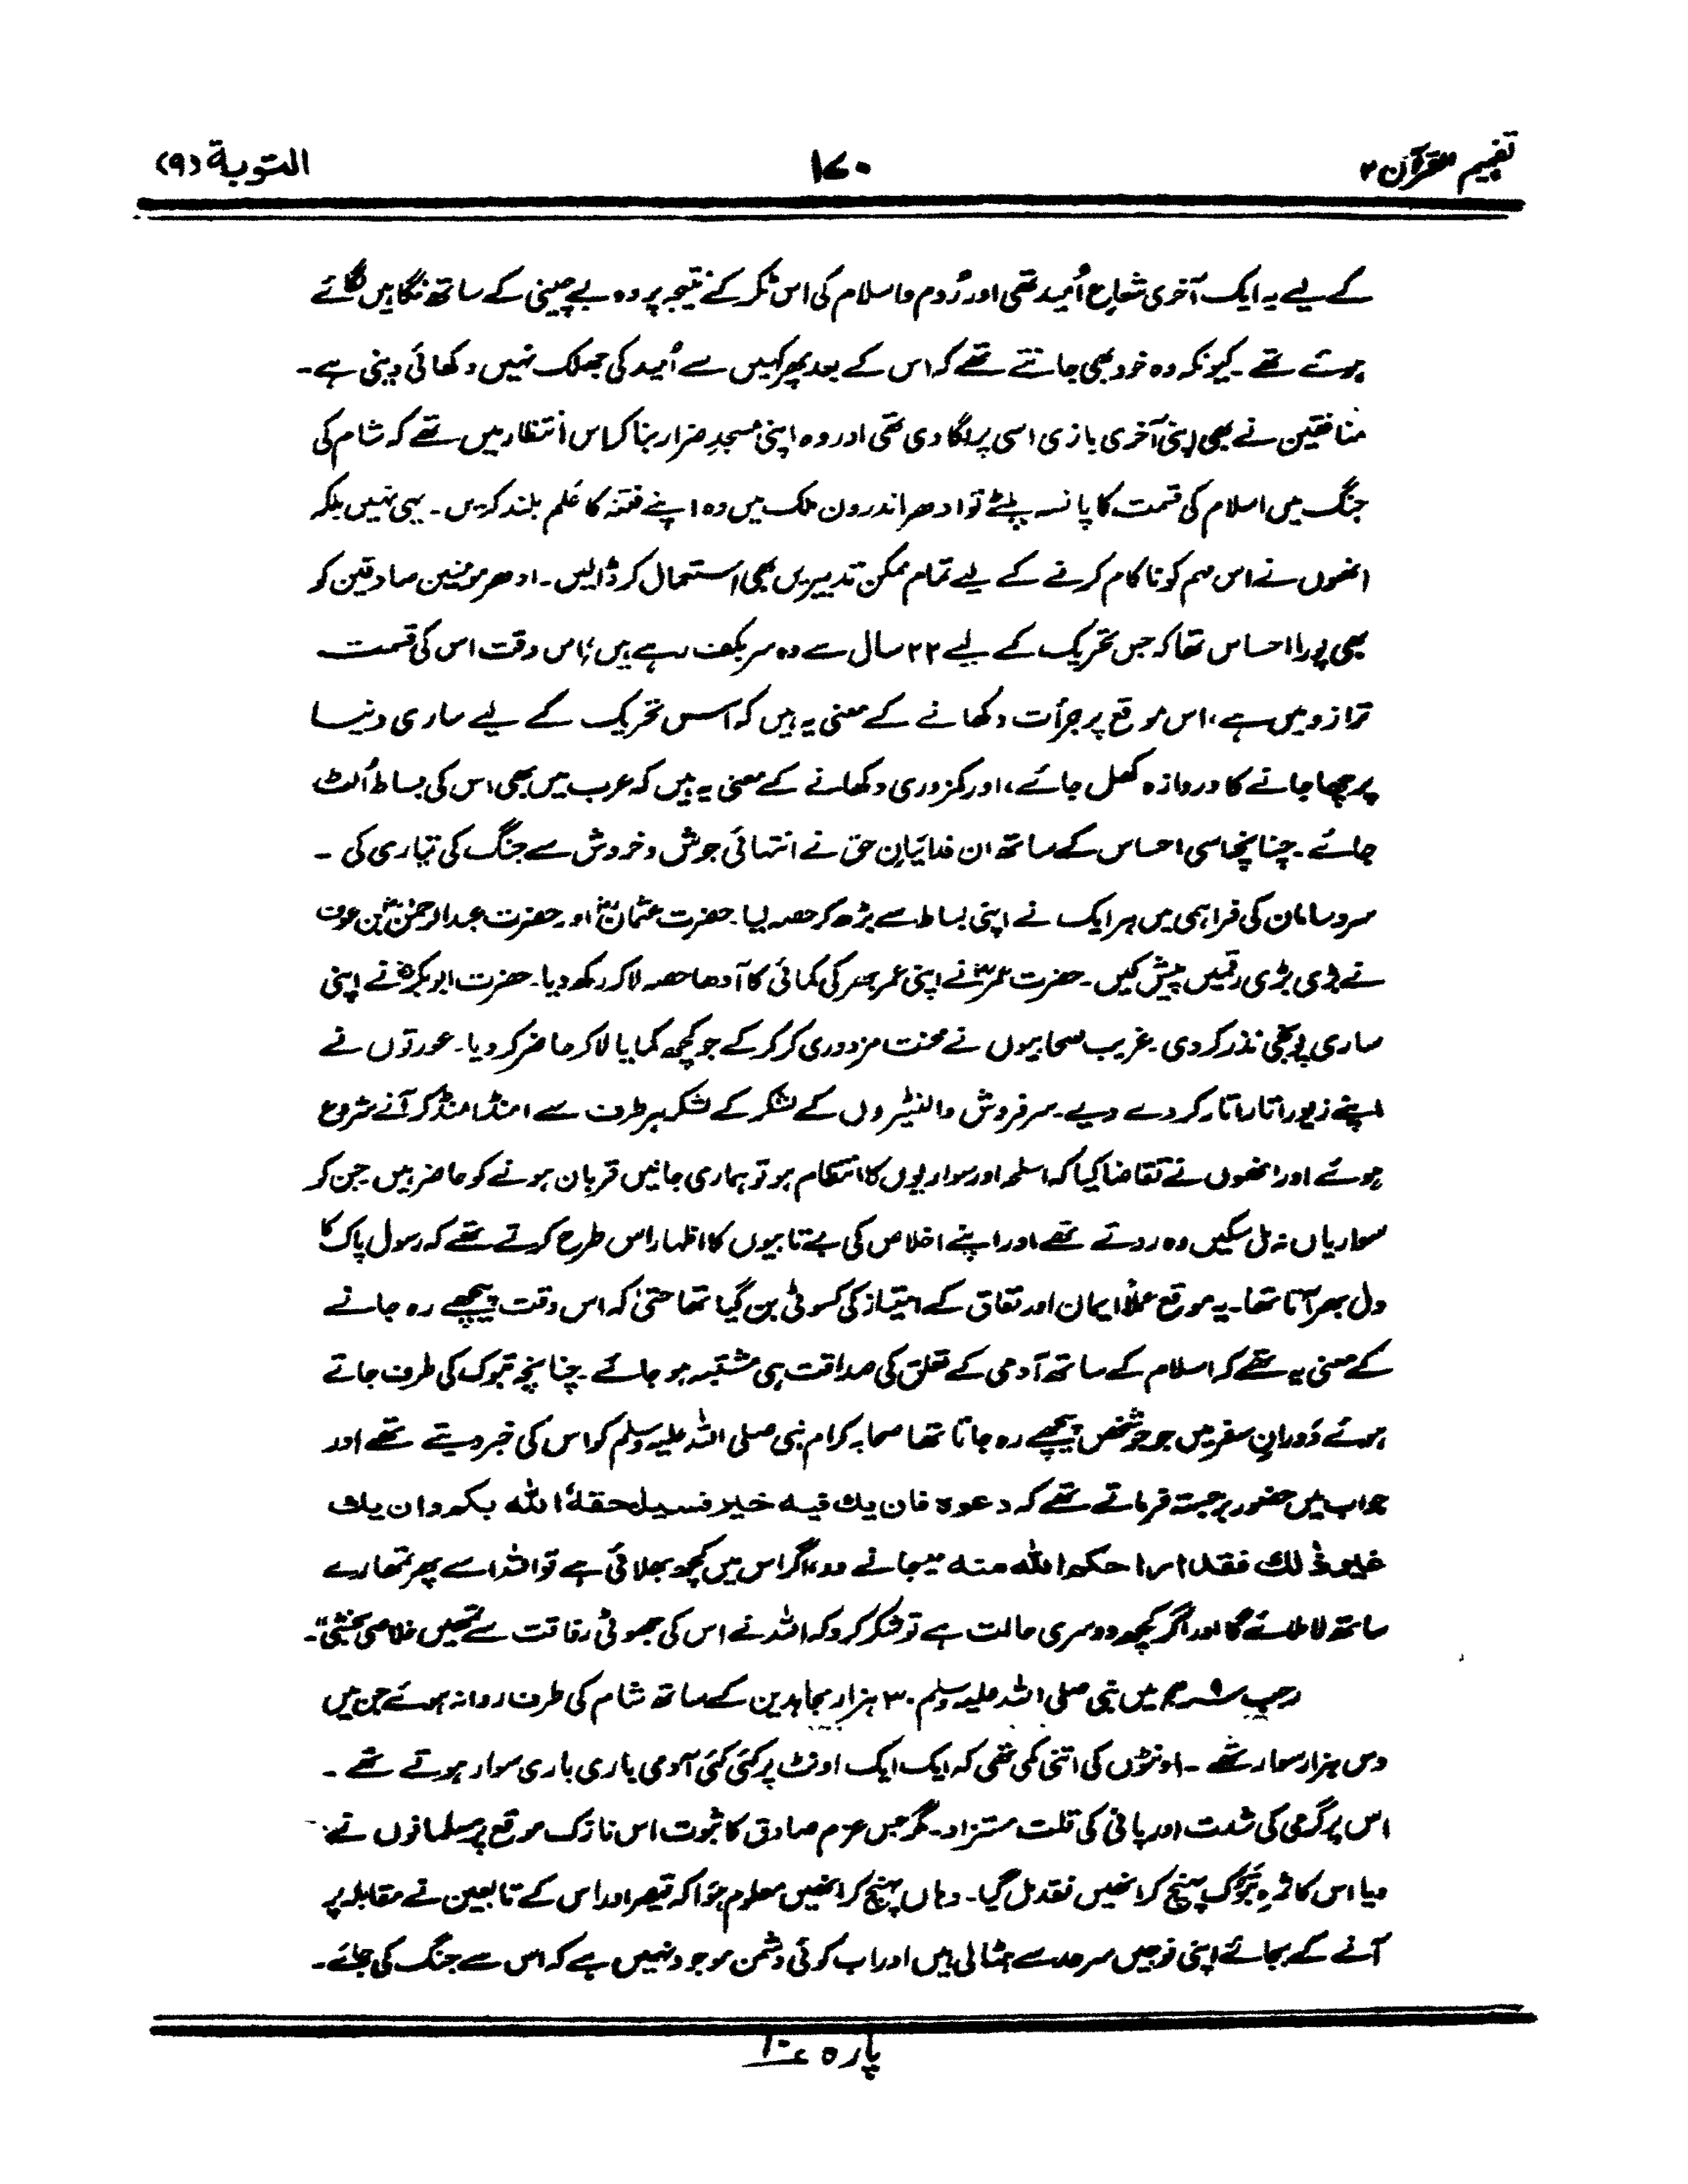 تفہیم القرآن ۲
۱۷۰
التوبة (۹)
کے لیے یہ ایک آخری شعاعِ اُمید تھی اور رُوم و اسلام کی اس ٹکر کے نتیجہ پر وہ بے چینی کے ساتھ نگاہیں لگائے
ہوئے تھے۔ کیونکہ وہ خود بھی جانتے تھے کہ اس کے بعد پھر کہیں سے اُمید کی جھلک نہیں دکھائی دینی ہے۔
منافقین نے بھی اپنی آخری بازی اسی پر لگا دی تھی اور وہ اپنی مسجدِ ضرار بنا کر اس انتظار میں تھے کہ شام کی
جنگ میں اسلام کی قسمت کا پانسہ پلٹے تو ادھر اندرون ملک میں وہ اپنے فتنہ کا عَلم بلند کریں۔ یہی نہیں بلکہ
انھوں نے اس مہم کو ناکام کرنے کے لیے تمام ممکن تدبیریں بھی استعمال کر ڈالیں۔ ادھر مومنین صادقین کو
بھی پورا احساس تھا کہ جس تحریک کے لیے ۲۲ سال سے وہ سر بکف رہے ہیں، اس وقت اس کی قسمت
ترازو میں ہے، اس موقع پر جرأت دکھانے کے معنی یہ ہیں کہ اس تحریک کے لیے ساری دنیا
پر چھا جانے کا دروازہ کھل جائے، اور کمزوری دکھانے کے معنی یہ ہیں کہ عرب میں بھی اس کی بساط اُلٹ
جائے۔ چنانچہ اسی احساس کے ساتھ ان فدائیانِ حق نے انتہائی جوش و خروش سے جنگ کی تیاری کی۔
سروسامان کی فراہمی میں ہر ایک نے اپنی بساط سے بڑھ کر حصہ لیا۔ حضرت عثمانؓ اور حضرت عبدالرحمٰنؓ بن عوف
نے بڑی بڑی رقمیں پیش کیں۔ حضرت عمرؓ نے اپنی عمر بھر کی کمائی کا آدھا حصہ لا کر رکھ دیا۔ حضرت ابوبکرؓ نے اپنی
ساری پونجی نذر کر دی۔ غریب صحابیوں نے محنت مزدوری کر کر کے جو کچھ کمایا لا کر حاضر کر دیا۔ عورتوں نے
اپنے زیور اتار اتار کر دے دیے۔ سرفروش والنٹیروں کے لشکر کے لشکر ہر طرف سے امنڈ امنڈ کر آنے شروع
ہوئے اور انھوں نے تقاضا کیا کہ اسلحہ اور سواریوں کا انتظام ہو تو ہماری جانیں قربان ہونے کو حاضر ہیں۔ جن کو
سواریاں نہ مل سکیں وہ روتے تھے اور اپنے اخلاص کی بے تابیوں کا اظہار اس طرح کرتے تھے کہ رسول پاک کا
دل بھر آتا تھا۔ یہ موقع عملاً ایمان اور نفاق کے امتیاز کی کسوٹی بن گیا تھا حتیٰ کہ اس وقت پیچھے رہ جانے
کے معنی یہ تھے کہ اسلام کے ساتھ آدمی کے تعلق کی صداقت ہی مشتبہ ہو جائے۔ چنانچہ تبوک کی طرف جاتے
ہوئے دَورانِ سفر میں جو جو شخص پیچھے رہ جاتا تھا صحابہ کرام نبی صلی اللہ علیہ وسلم کو اس کی خبر دیتے تھے اور
جواب میں حضور برجستہ فرماتے تھے کہ دعوه فان يك فيه خير فسيلحقه الله بكم وان يك
غير ذلك فقد اراحكم الله منه جانے دو، اگر اس میں کچھ بھلائی ہے تو اللہ اسے پھر تمھارے
ساتھ لا ملائے گا اور اگر کچھ دوسری حالت ہے تو شکر کرو کہ اللہ نے اس کی جھوٹی رفاقت سے تمھیں خلاصی بخشی"۔
رجب ۹ھ میں نبی صلی اللہ علیہ وسلم ۳۰ ہزار مجاہدین کے ساتھ شام کی طرف روانہ ہوئے جن میں
دس ہزار سوار تھے۔ اونٹوں کی اتنی کمی تھی کہ ایک ایک اونٹ پر کئی کئی آدمی باری باری سوار ہوتے تھے۔
اس پر گرمی کی شدت اور پانی کی قلت مستزاد۔ مگر جس عزم صادق کا ثبوت اس نازک موقع پر مسلمانوں نے
دیا اس کا ثمرہ تبوک پہنچ کر انھیں نقد مل گیا۔ وہاں پہنچ کر انھیں معلوم ہُوا کہ قیصر اور اس کے تابعین نے مقابلہ پر
آنے کے بجائے اپنی فوجیں سرحد سے ہٹا لی ہیں اور اب کوئی دشمن موجود نہیں ہے کہ اس سے جنگ کی جائے۔
پارہ ۱۰